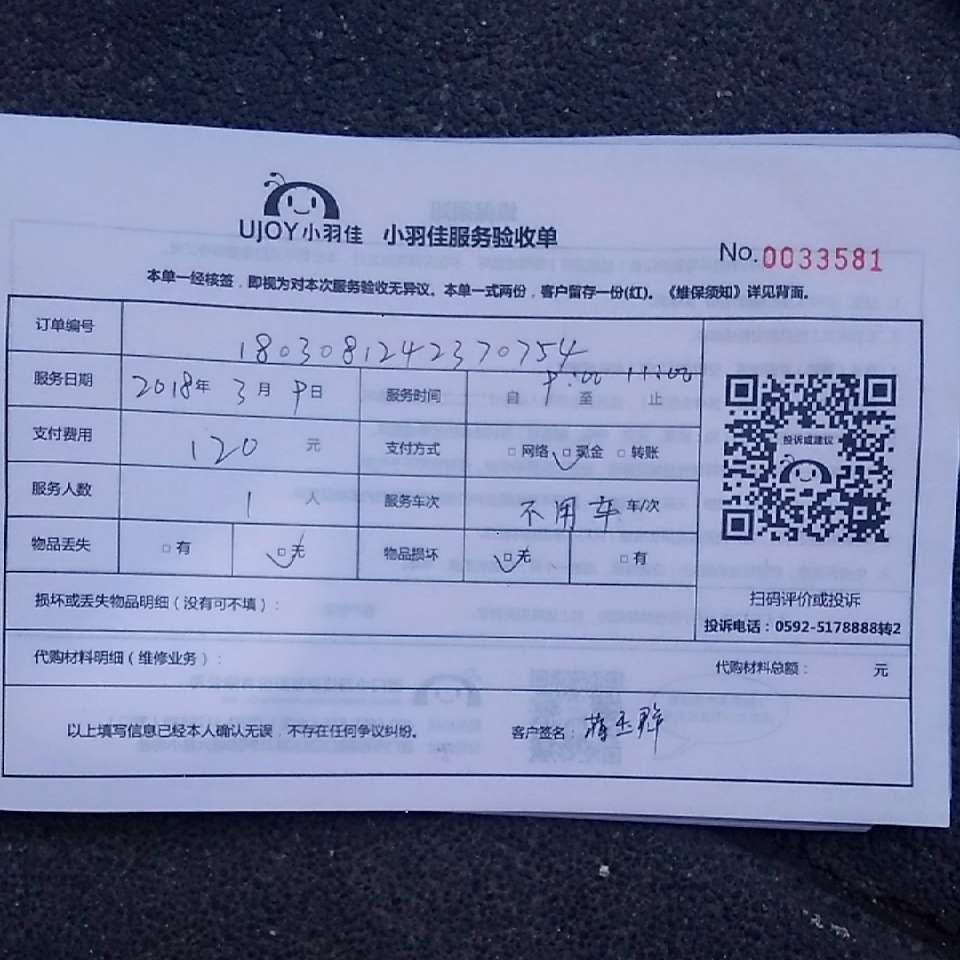 UJOY小羽佳 小羽佳服务验收单
No.0033581
本单一经核签，即视为对本次服务验收无异议。本单一式两份，客户留存一份(红)。《维保须知》详见背面。
订单编号 1803081242370754
服务日期 2018年 3月 9日 服务时间 自 9:00 至 11:00 止
支付费用 120 元 支付方式 □网络 □现金 □转账
服务人数 1 人 服务车次 不用车 车/次
物品丢失 □有 □无 物品损坏 □无 □有
投诉或建议
扫码评价或投诉
投诉电话：0592-5178888转2
损坏或丢失物品明细（没有可不填）：
代购材料明细（维修业务）： 代购材料总额： 元
以上填写信息已经本人确认无误，不存在任何争议纠纷。 客户签名：